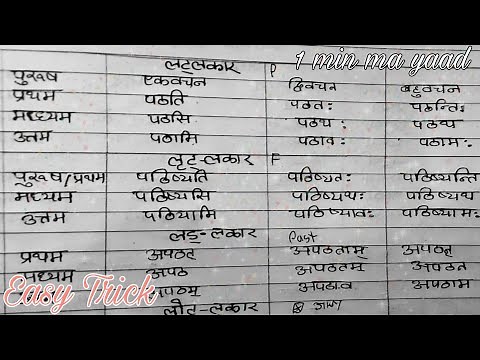 लट्लकार P 1 min ma yaad
पुरूष एकवचन द्विवचन बहुवचन
प्रथम पठति पठतः पठन्तिः
मध्यम पठसि पठथः पठथ
उत्तम पठामि पठावः पठामः
लृट-लकार F
पुरूष/प्रथम पठिष्यति पठिष्यतः पठिष्यन्ति
मध्यम पठिष्यसि पठिष्यथः पठिष्यथ
उत्तम पठियामि पठिष्यावः पठिष्यामः
लङ्-लकार Past
प्रथम अपठत् अपठताम् अपठन्
मध्यम अपठ अपठतम् अपठत
अपठम् अपठाव अपठाम
Easy Trick
लौट-लकार